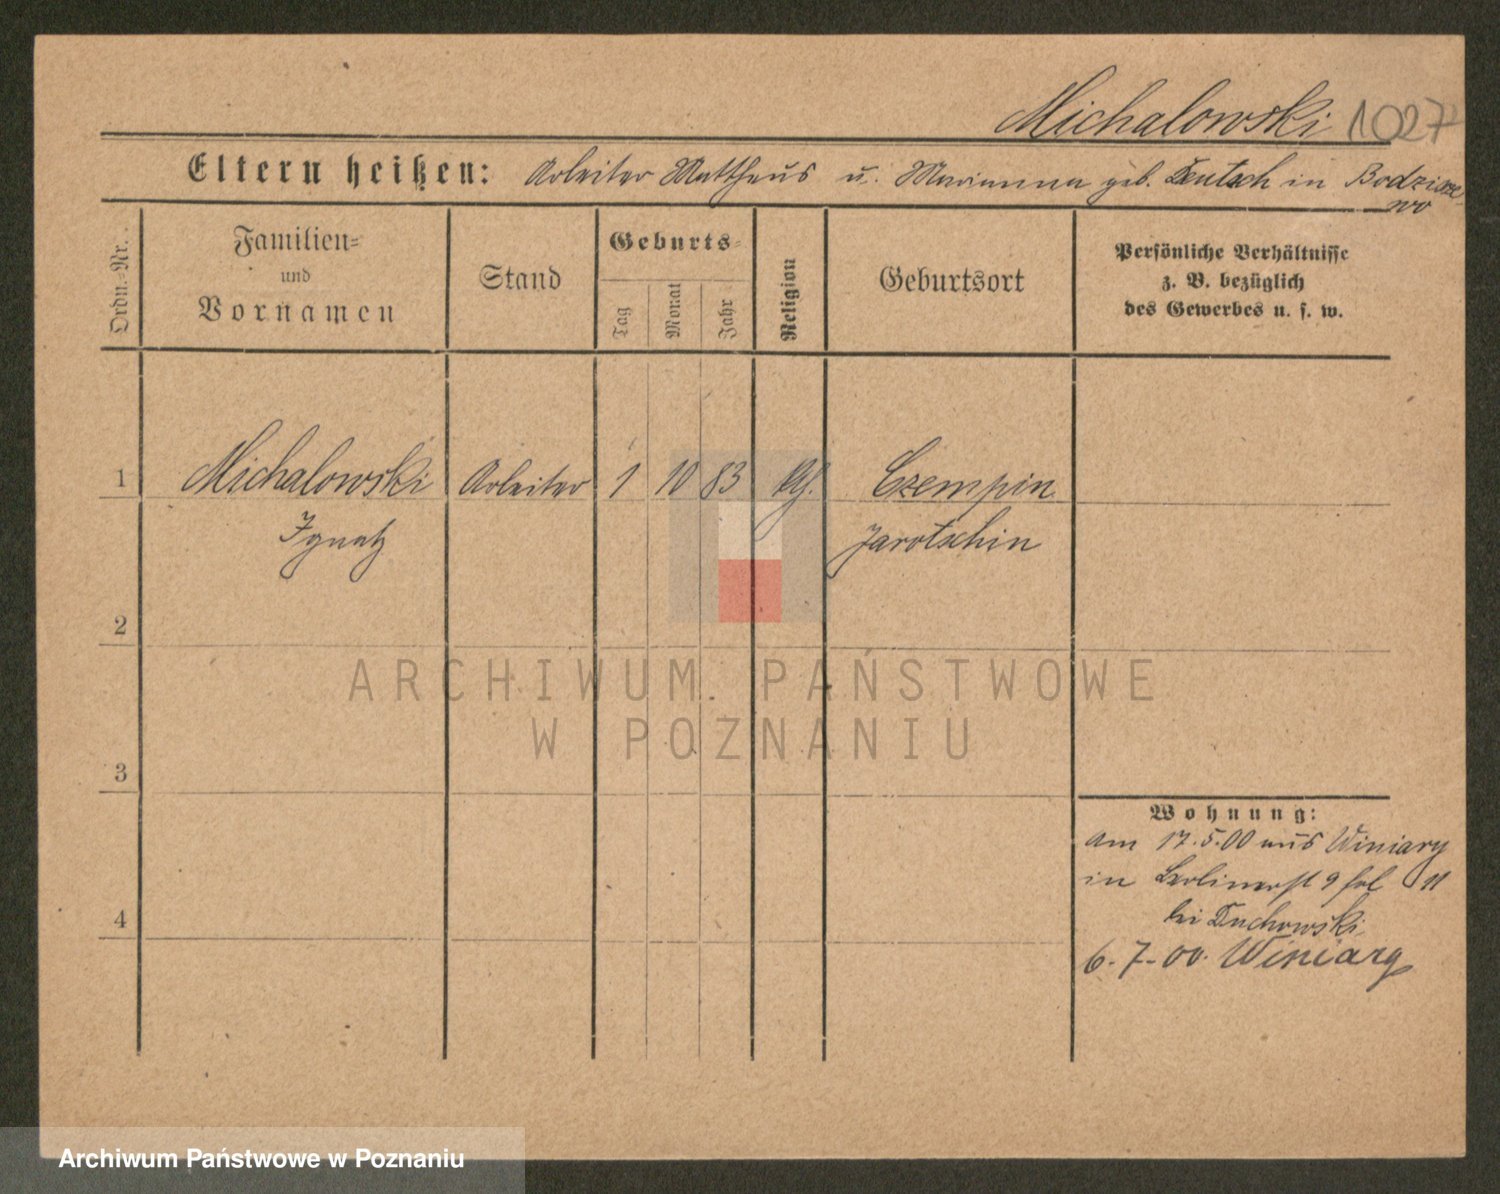 Michalowski 1027
Eltern heißen: Arbeiter Mattheus u. Marianna geb. Deutsch in Bodzisze-
wo
Ordn.-Nr.
Familien-
und
Vornamen
Stand
Geburts-
Tag
Monat
Jahr
Religion
Geburtsort
Persönliche Verhältnisse
z. B. bezüglich
des Gewerbes u. s. w.
1 Michalowski Arbeiter 1 10 83 Czempin
Ignatz Jarotschin
2
3
4
Wohnung:
Am 17.5.00 aus Winiary
in Berlinerst 9 11
bei Duchowski
6.-7.-00. Winiary
ARCHIWUM PAŃSTWOWE
W POZNANIU
Archiwum Państwowe w Poznaniu